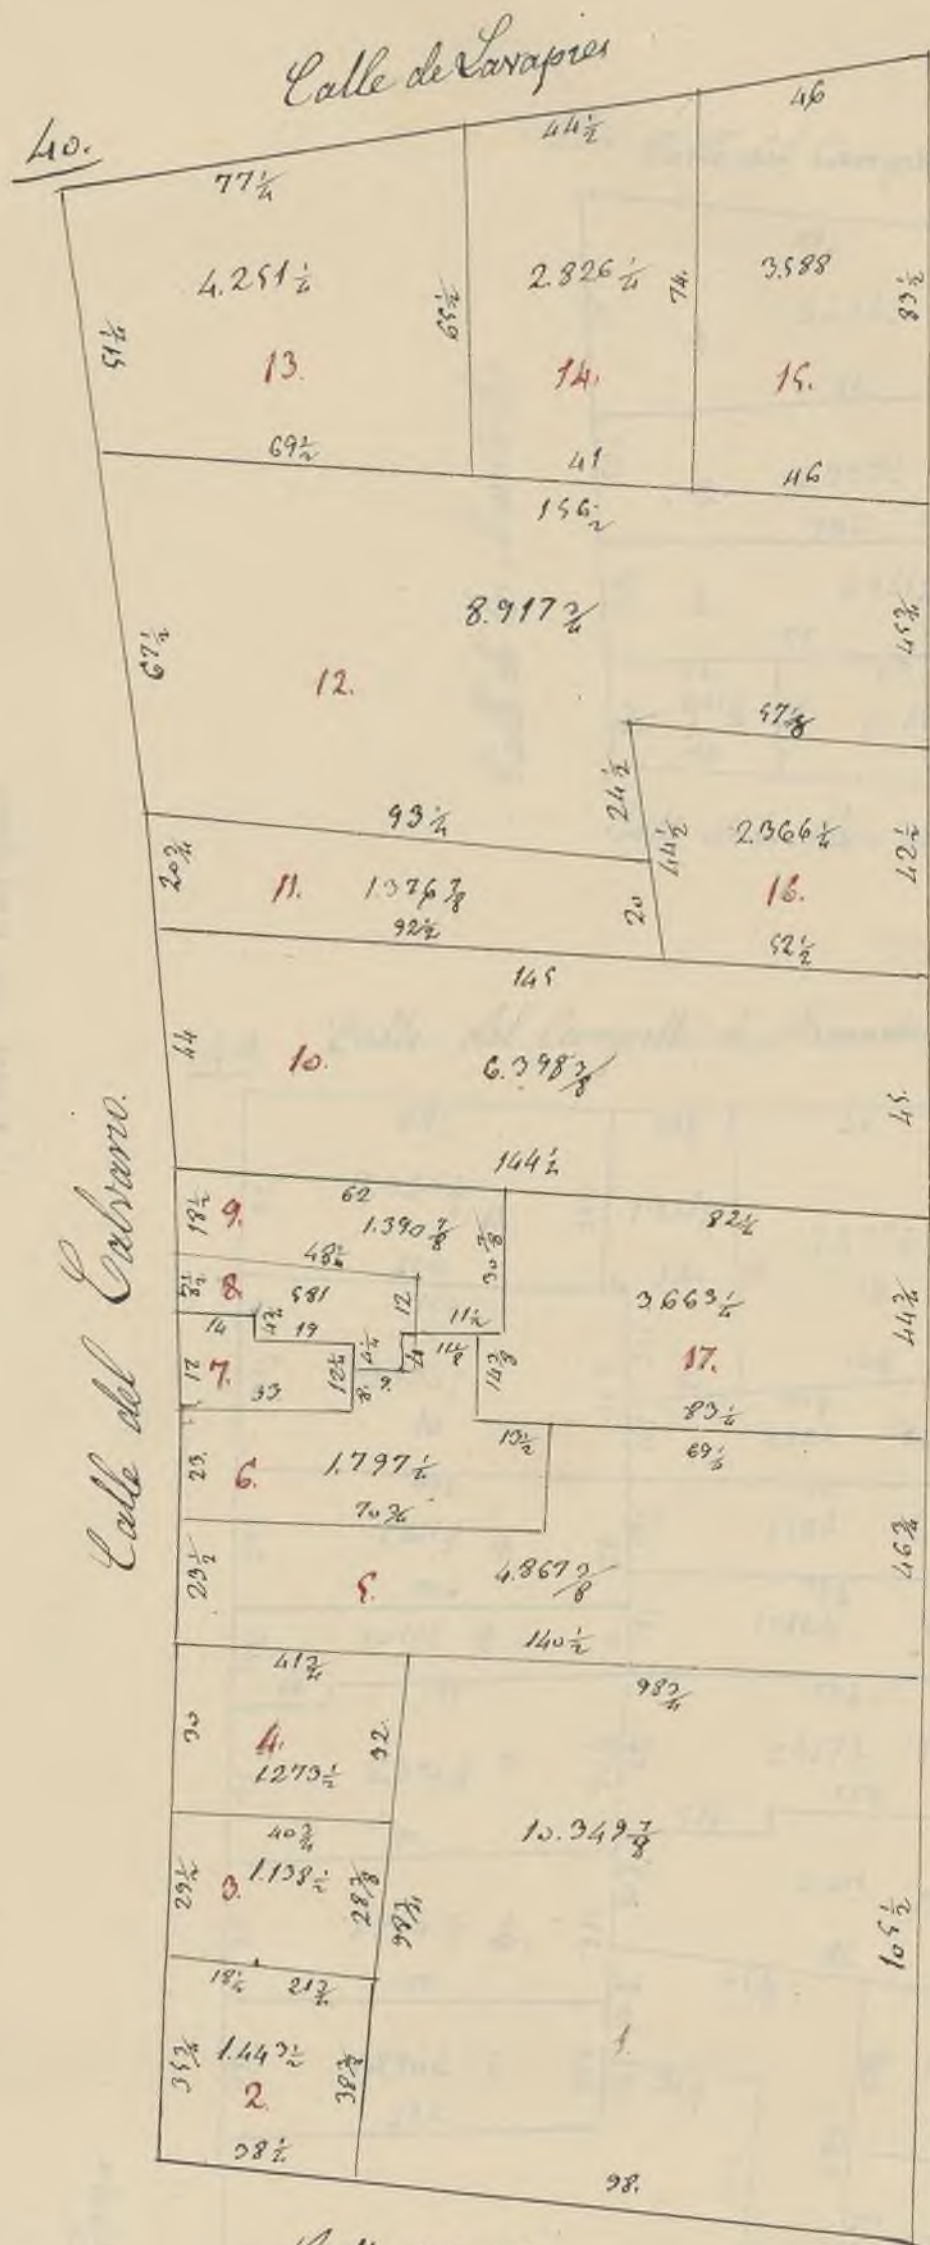 Calle de Lavapies
40.
77 1/4
44 1/2
46
4.251 1/4
2.826 1/4
3.588
51 1/4
65 1/2
74.
83 1/2
13.
14.
15.
69 1/2
41
46
156 1/2
8.917 3/4
67 1/2
45 3/4
12.
57 1/8
24 1/2
93 1/4
44 1/2
2.366 1/4
42 1/2
20 3/4
11.
1.376 7/8
20
16.
92 1/2
52 1/2
145
44
10.
6.398 3/8
45.
144 1/2
Calle del Calvario.
18 1/2
9.
62
1.390 7/8
30 7/8
82 1/2
48 1/2
8
581
12
3.663 1/4
44 3/4
14
19
11 1/2
11 1/2
17
7.
12 1/2
14 3/8
17.
33
83 1/4
23.
6.
1.797 1/2
13 1/2
69 1/2
70 3/4
46 3/4
23 1/2
5.
4.867 3/8
140 1/2
41 3/4
98 3/4
30
4.
32.
1273 1/2
40 3/4
10.349 7/8
29 1/2
3.
1.138 1/2
28 3/8
105 1/2
18 1/2
21 3/4
35 3/4
1.443 1/2
38 3/8
1.
2.
38 1/2
98.